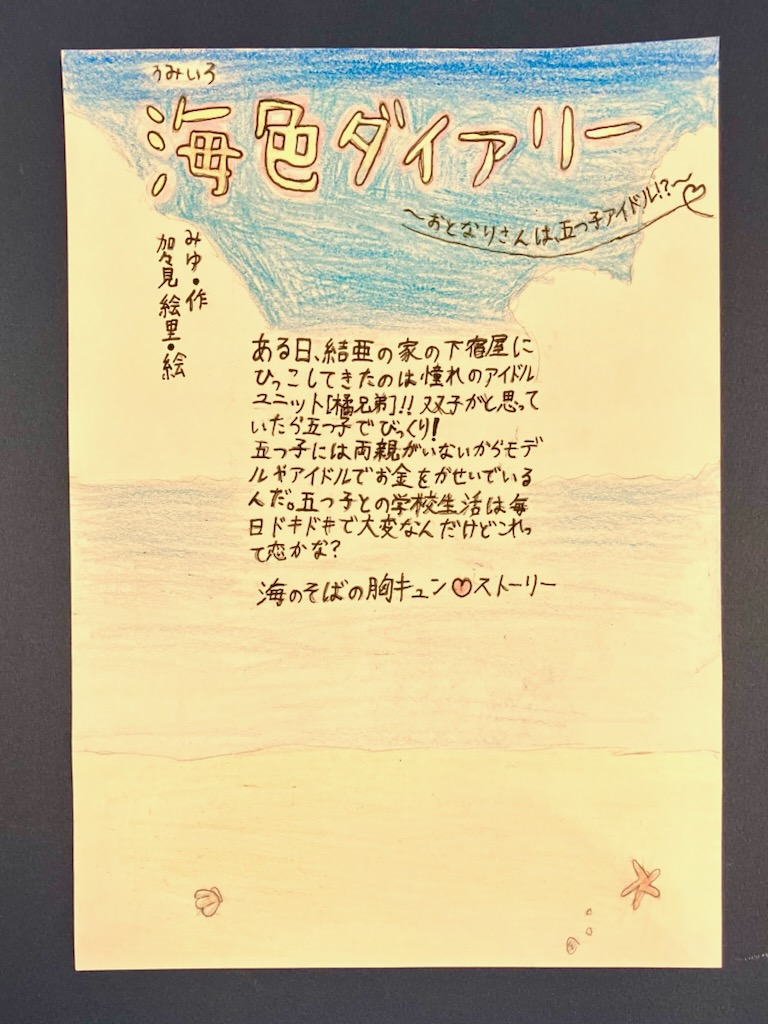 うみいろ
海色ダイアリー
～おとなりさんは、五つ子アイドル!?～
みゆ・作
加々見絵里・絵
ある日、結亜の家の下宿屋に
ひっこしてきたのは憧れのアイドル
ユニット[橘兄弟]!! 双子がと思って
いたら五つ子でびっくり!
五つ子には両親がいないからモデ
ルやアイドルでお金をかせいでいる
んだ。五つ子との学校生活は毎
日ドキドキで大変なんだけどこれっ
て恋かな?
海のそばの胸キュン♡ストーリー